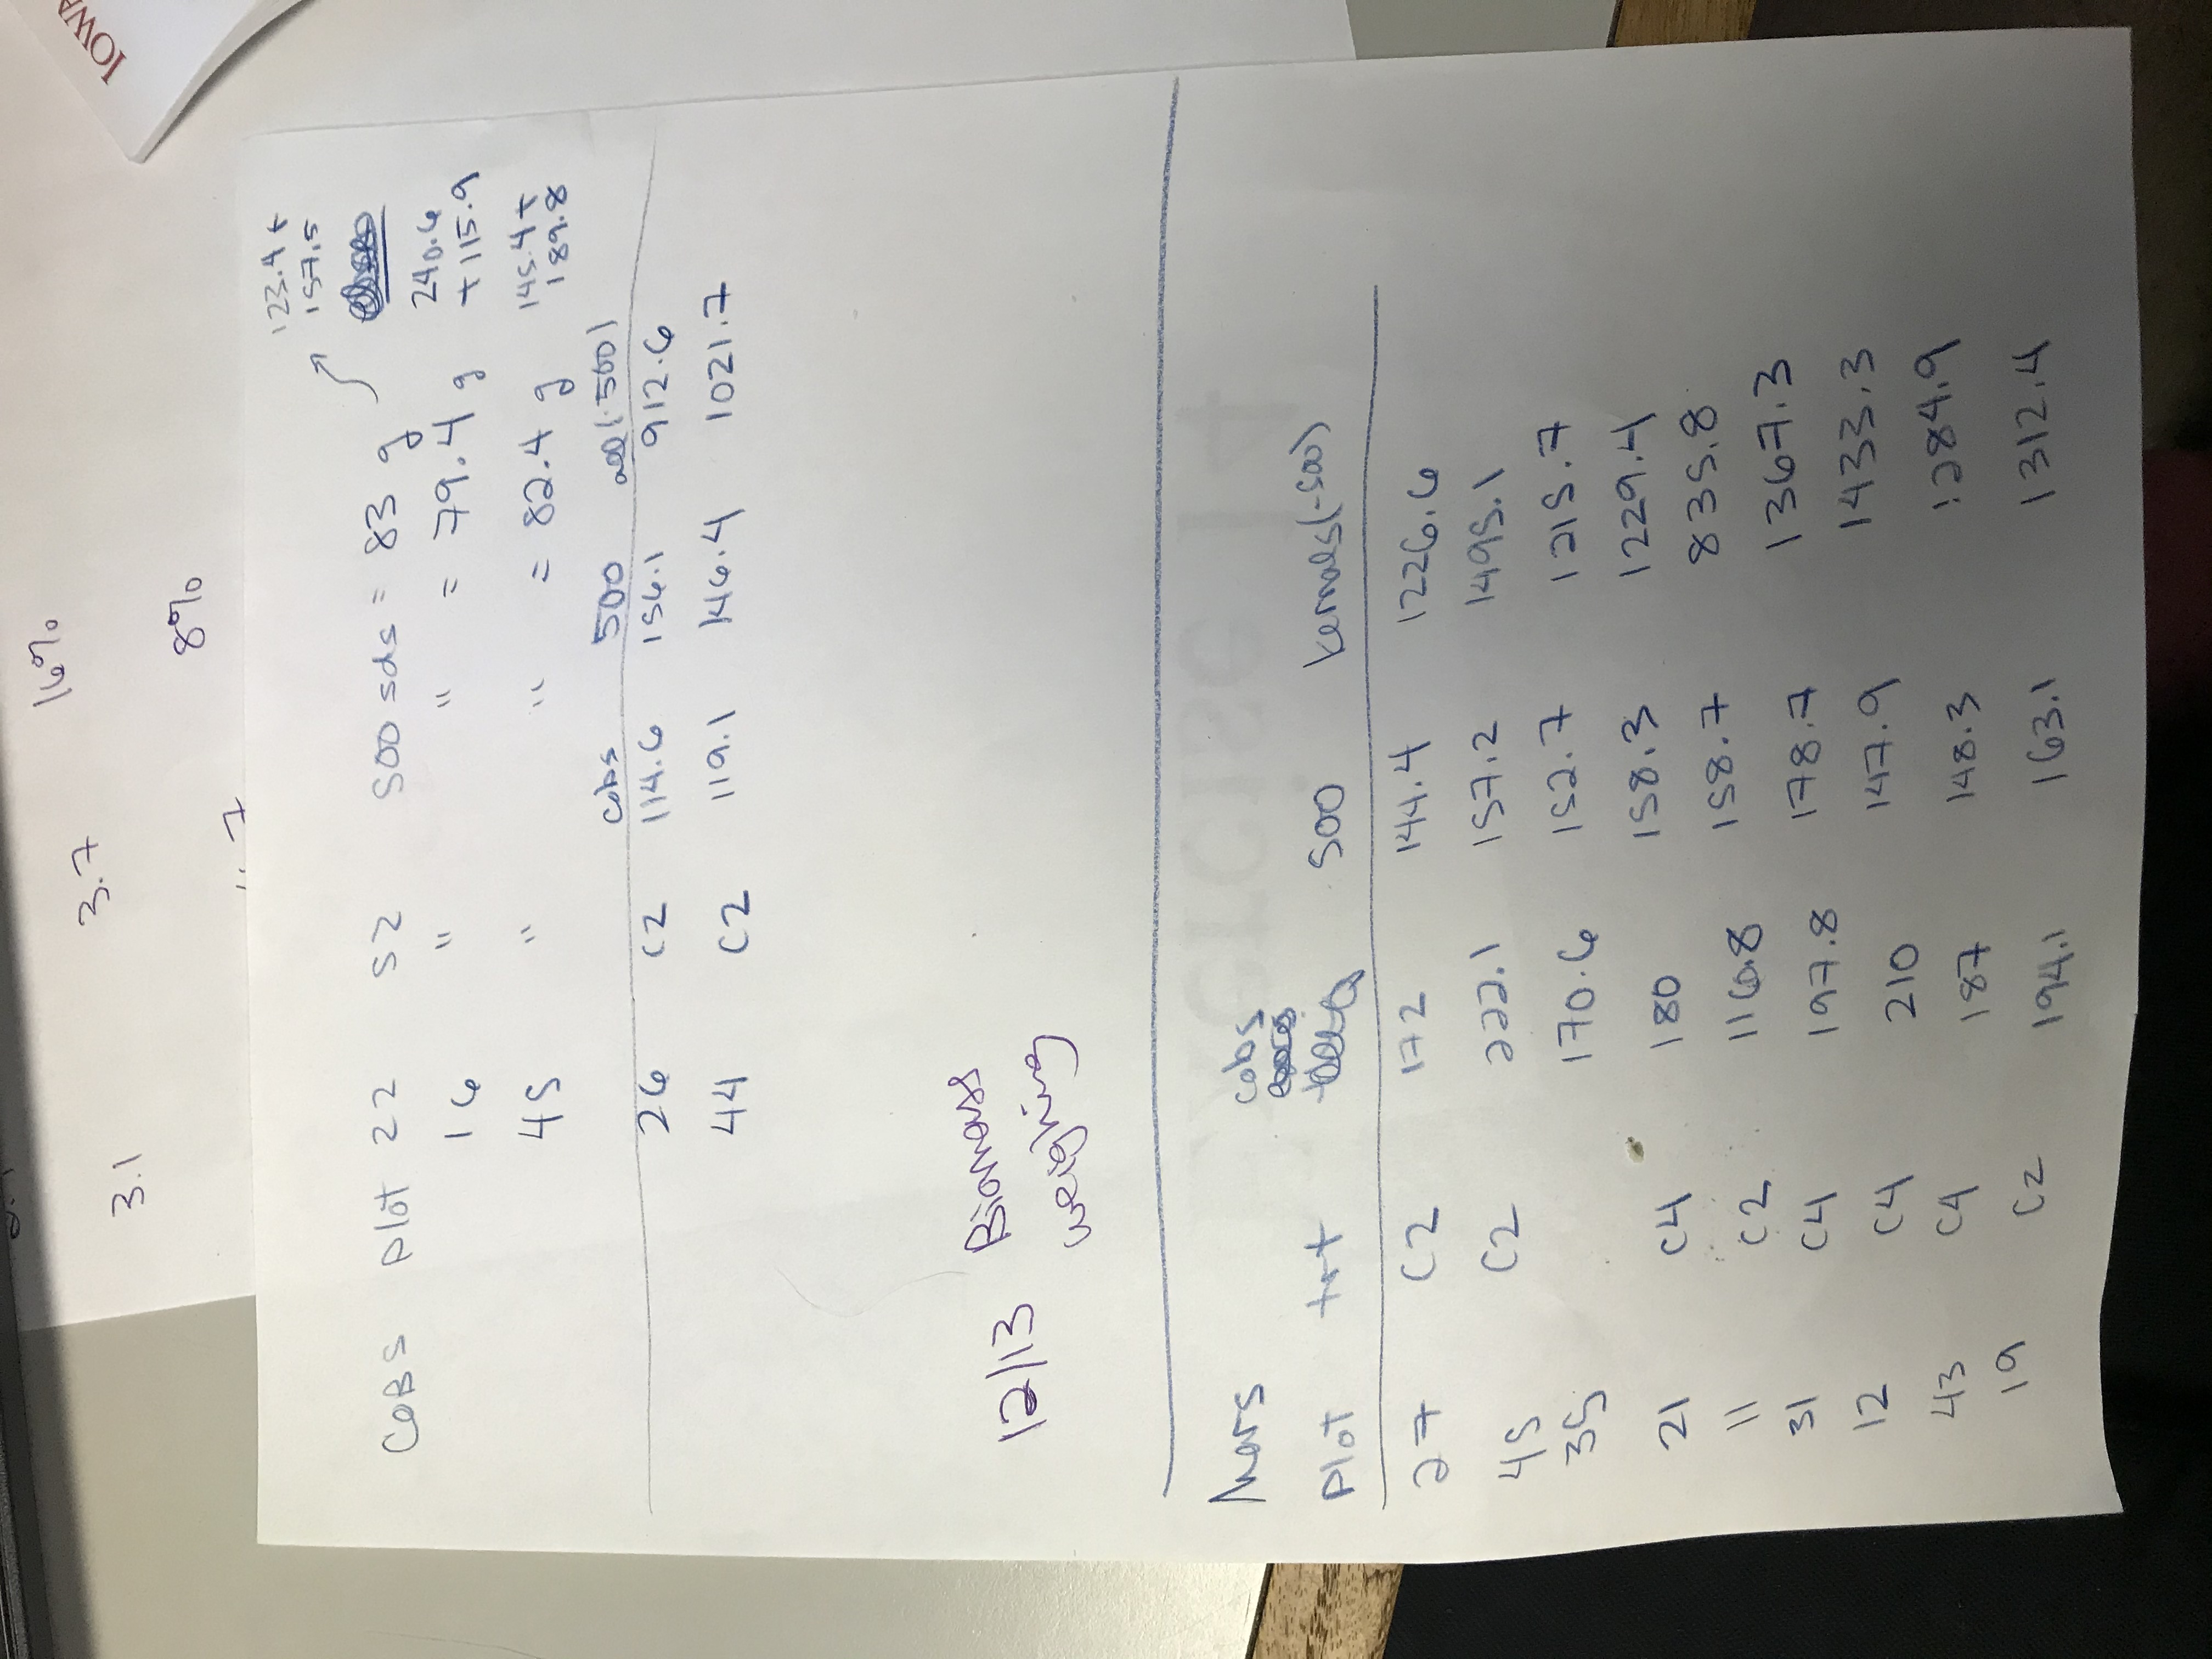 16%
3.7
3.1
8%
IOWA
123.4 +
157.5
COBS Plot 22 S2 500 sds = 83 g
240.6
16 " " = 79.4 g
+ 115.9
45 " " = 82.4 g
145.4 +
189.8
cobs 500 all (-500)
26 C2 114.6 156.1 912.6
44 C2 119.1 146.4 1021.7
12/13 Biomass
weighing
Exercise 14
Mars
cobs
Plot trt 500 kernals (-500)
27 C2 172 144.4 1226.6
45 C2 222.1 157.2 1495.1
35 170.6 152.7 1215.7
21 C4 180 158.3 1229.4
11 C2 116.8 158.7 835.8
31 C4 197.8 178.7 1367.3
12 C4 210 147.9 1433.3
43 C4 187 148.3 1284.9
19 C2 194.1 163.1 1312.4